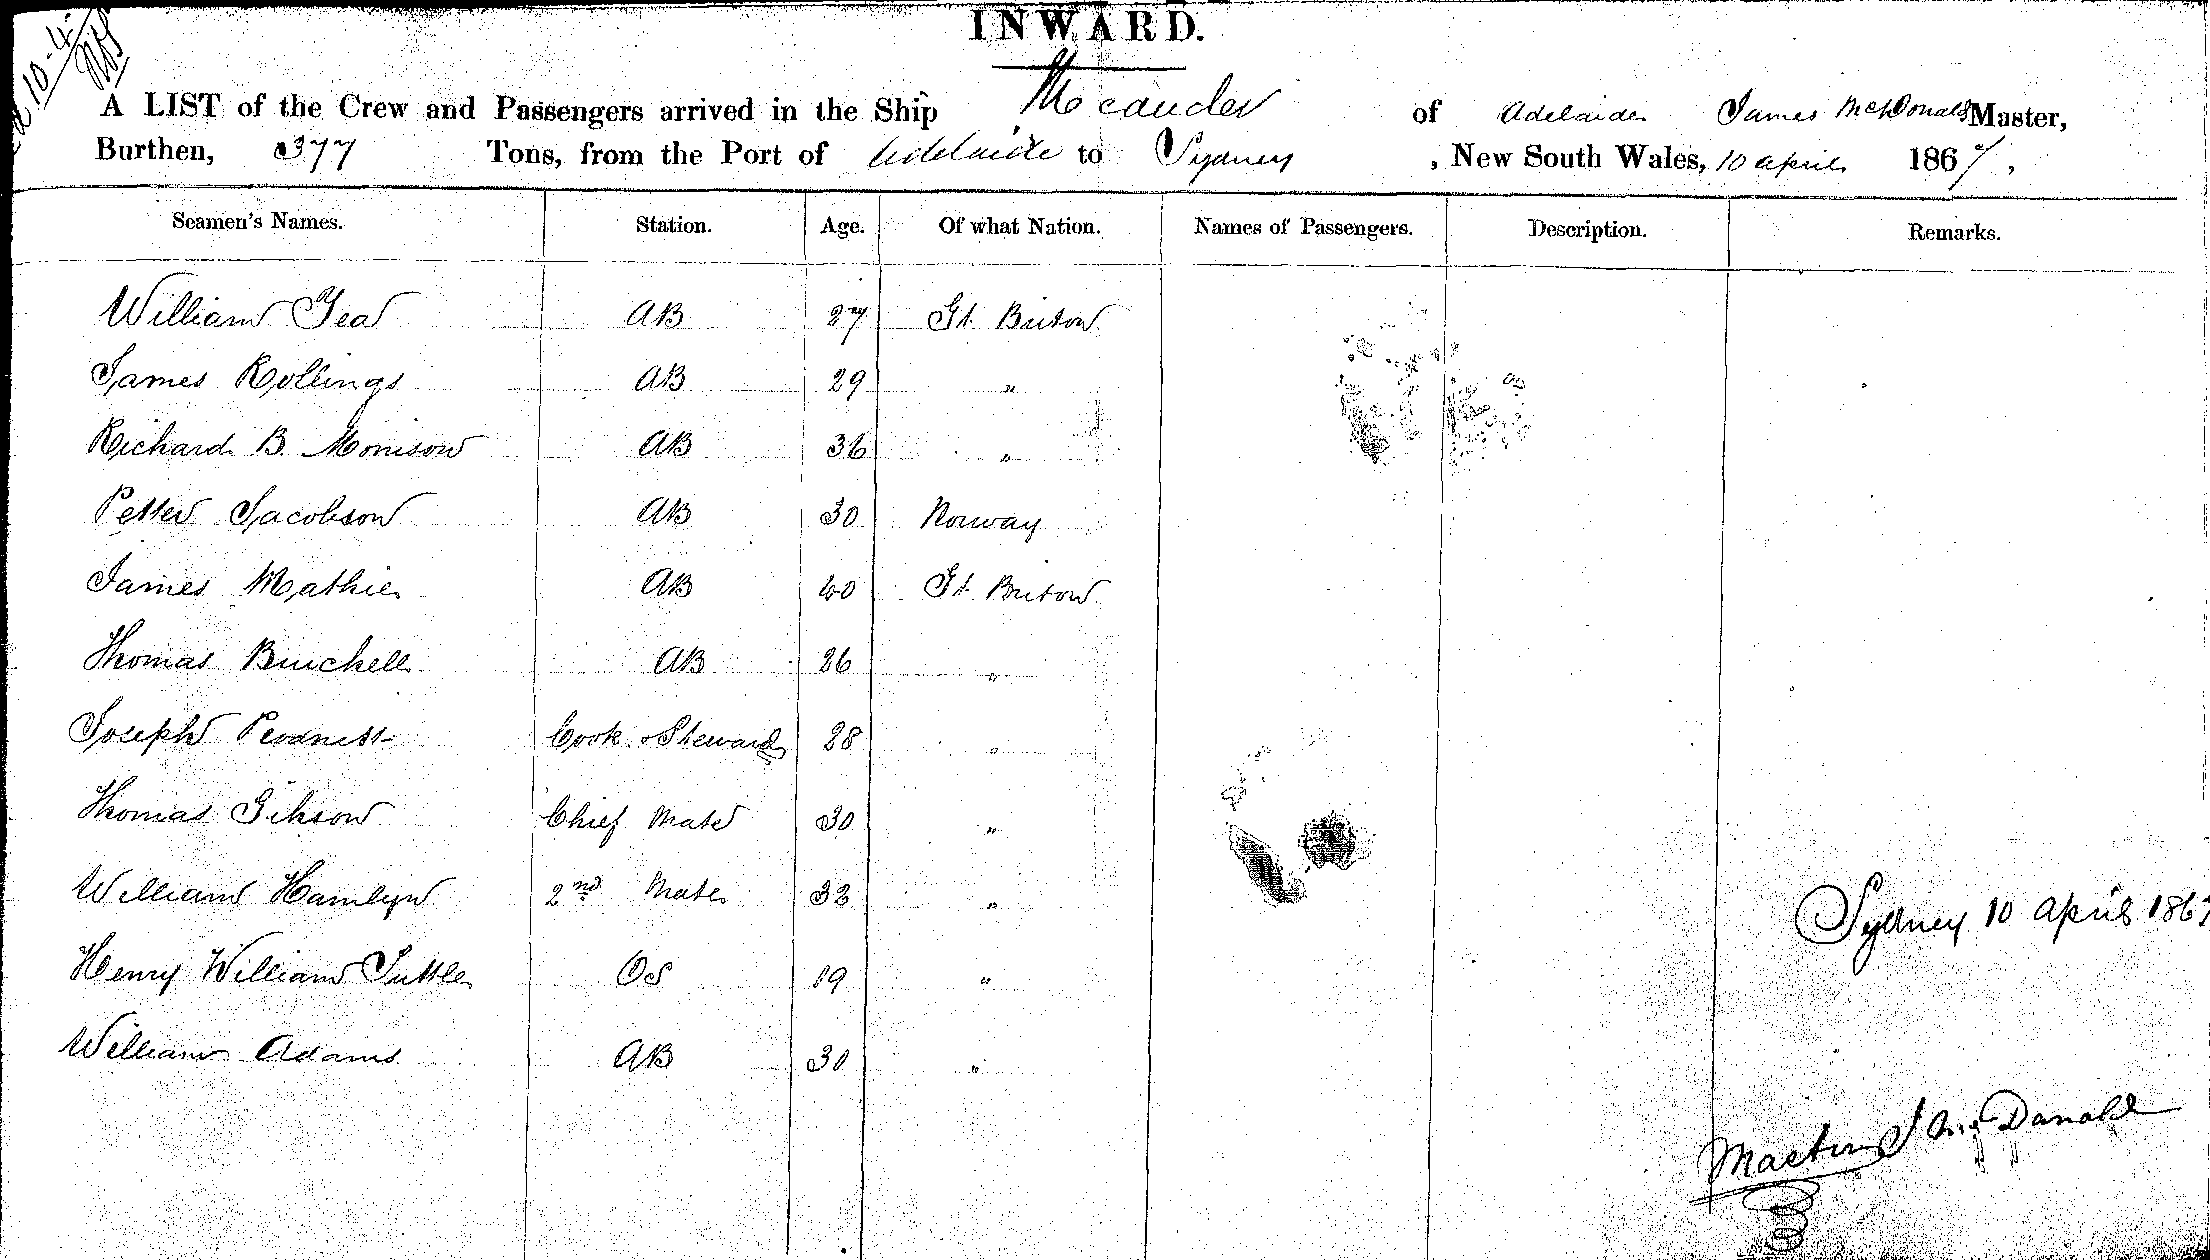 INWARD.
A LIST of the Crew and Passengers arrived in the Ship Meander of Adelaide James McDonald Master,
Burthen, 377 Tons, from the Port of Adelaide to Sydney, New South Wales, 10 April 1867,
Seamen's Names. Station. Age. Of what Nation. Names of Passengers. Description. Remarks.
William Gea AB 27 Gt. Briton
James Rollings AB 29 "
Richard B. Morrison AB 36 "
Petter Jacobson AB 30 Norway
James Mathie AB 40 Gt. Briton
Thomas Burchell AB 26 "
Joseph Cook & Steward 28 "
Thomas Gibson Chief Mate 30 "
William Hamlyn 2nd Mate 33 "
Sydney 10 April 1867
Henry William Tuttle OS 19 "
William Adams AB 30 "
J McDonald